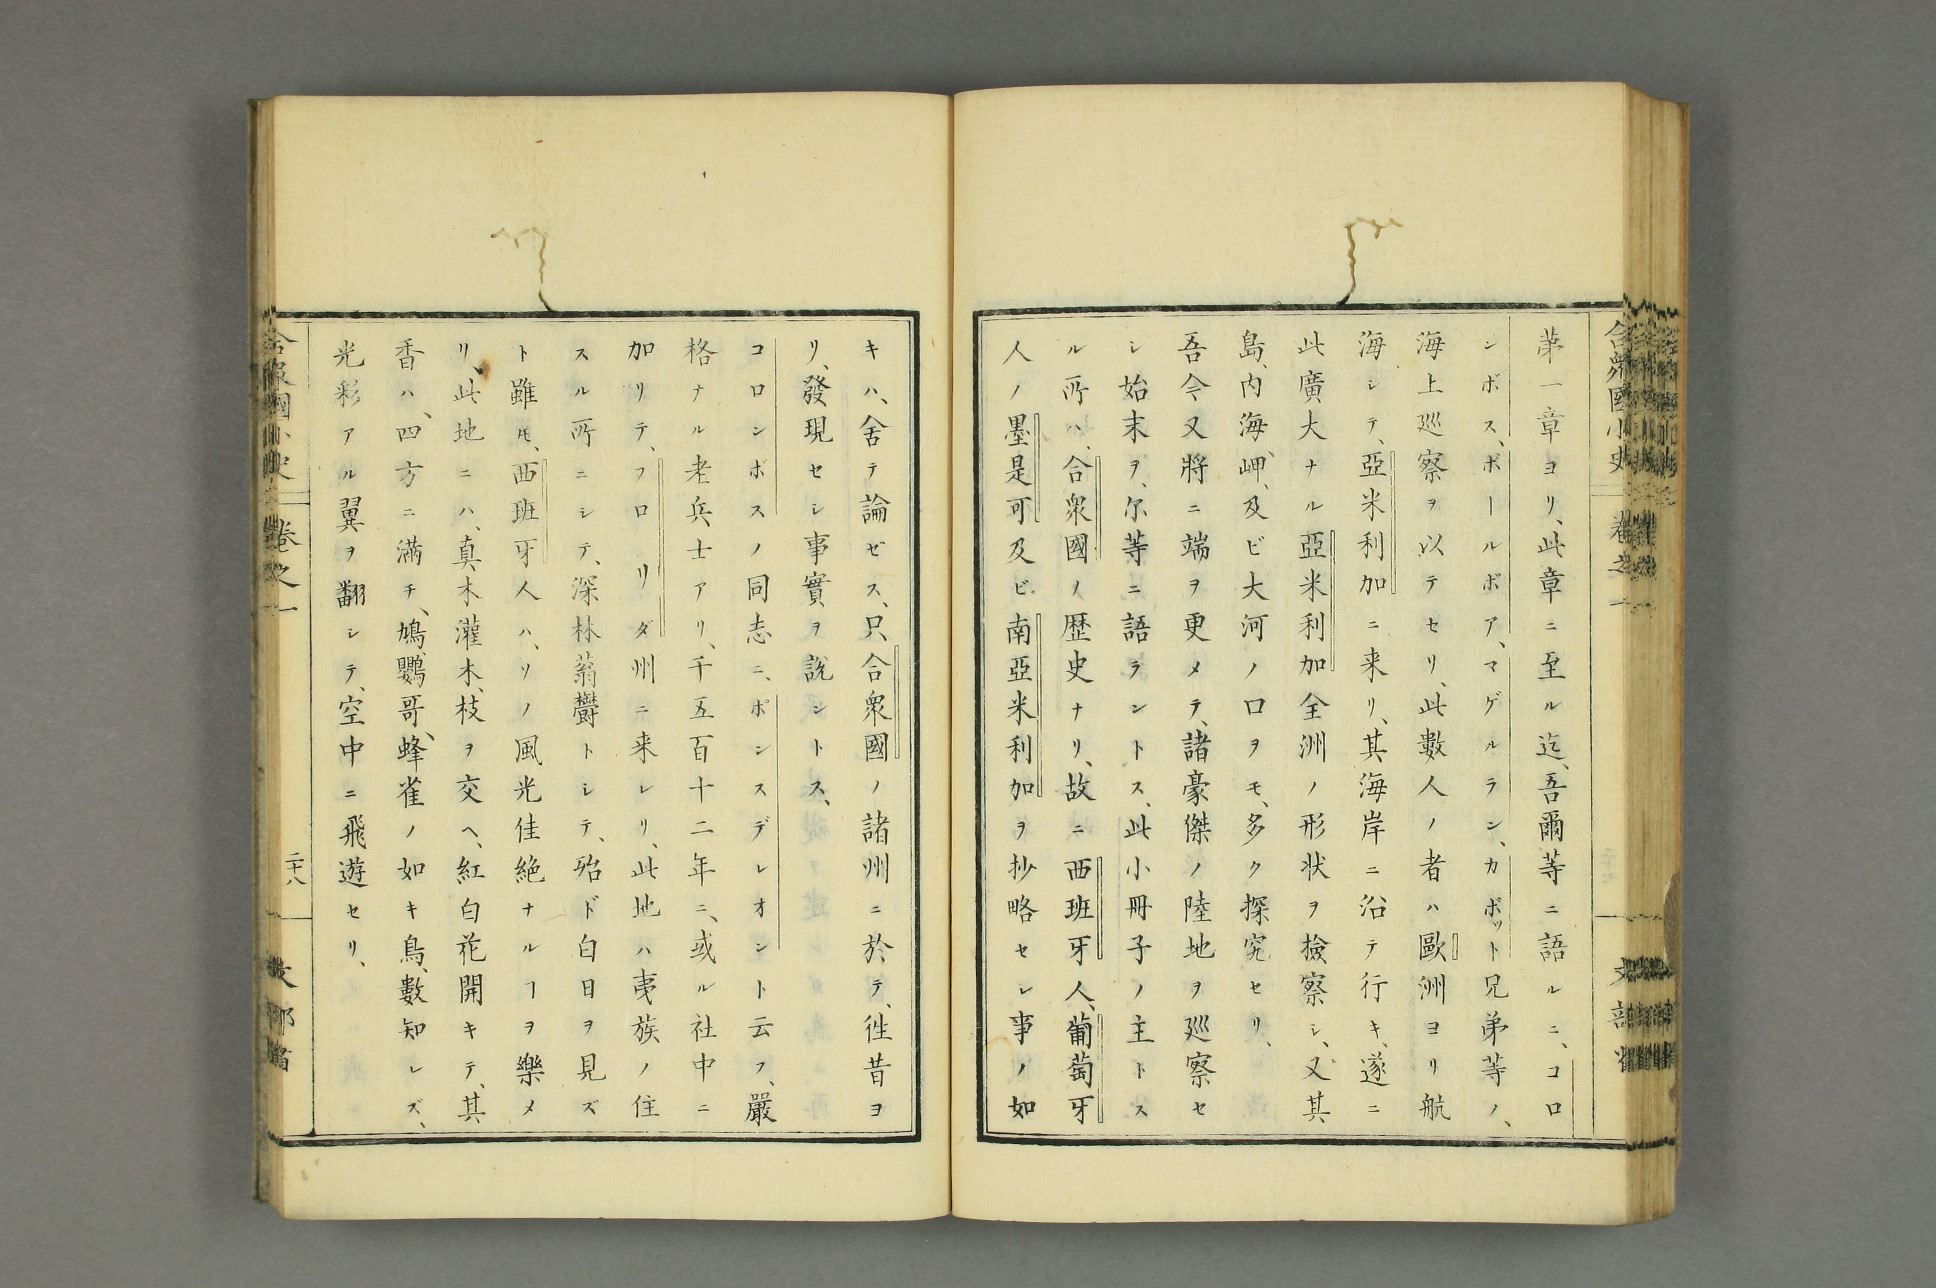 合衆國小史 卷之一 文部省
第一章ヨリ、此章ニ至ル迄、吾爾等ニ語ルニ、コロ
ンボス、ボールボア、マゲルラン、カボット兄弟等ノ、
海上廵察ヲ以テセリ、此數人ノ者ハ歐洲ヨリ航
海シテ、亞米利加ニ来リ、其海岸ニ沿テ行キ、遂ニ
此廣大ナル亞米利加全洲ノ形状ヲ撿察シ、又其
島、内海、岬、及ビ大河ノ口ヲモ、多ク探究セリ、
吾今又將ニ端ヲ更メテ、諸豪傑ノ陸地ヲ廵察セ
シ始末ヲ、尔等ニ語ラントス、此小冊子ノ主トス
ル所ハ、合衆國ノ歴史ナリ、故ニ西班牙人、葡萄牙
人ノ墨是可及ビ南亞米利加ヲ抄略セシ事ノ如
キハ、舍テ論ゼス、只合衆國ノ諸州ニ於テ、徃昔ヨ
リ、發現セシ事實ヲ説ントス、
コロンボスノ同志ニ、ポンスデレオント云フ、嚴
格ナル老兵士アリ、千五百十二年ニ、或ル社中ニ
加リテ、フロリダ州ニ来レリ、此地ハ夷族ノ住
スル所ニシテ、深林蓊鬱トシテ、殆ド白日ヲ見ズ
ト雖𪜈、西班牙人ハ、ソノ風光佳絶ナルヿヲ樂メ
リ、此地ニハ、真木灌木、枝ヲ交ヘ、紅白花開キテ、其
香ハ、四方ニ滿チ、鳩、鸚哥、蜂雀ノ如キ鳥、數知レズ、
光彩アル翼ヲ翻シテ、空中ニ飛遊セリ、
合衆國小史 卷之一 二十八 文部省